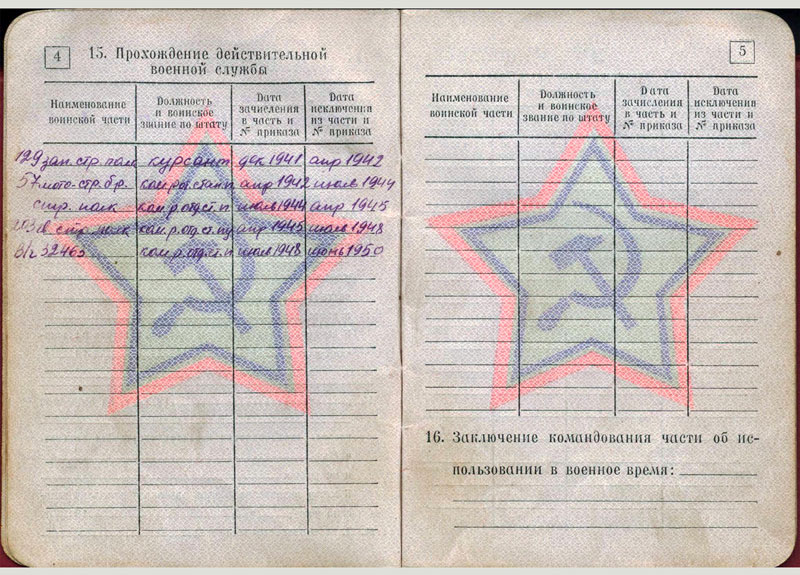 4
15. Прохождение действительной
военной службы
Наименование
воинской части
Должность
и воинское
звание по штату
Дата
зачисления
в часть и
№ приказа
Дата
исключения
из части и
№ приказа
129 зап. стр. полк курсант дек 1941 апр 1942
57 мото-стр. бр. апр 1942 июль 1944
стр. полк июль 1944 апр 1945
стр. полк апр 1945 июль 1948
в/ч 32465 июль 1948 июнь 1950
5
Наименование
воинской части
Должность
и воинское
звание по штату
Дата
зачисления
в часть и
№ приказа
Дата
исключения
из части и
№ приказа
16. Заключение командования части об ис-
пользовании в военное время: